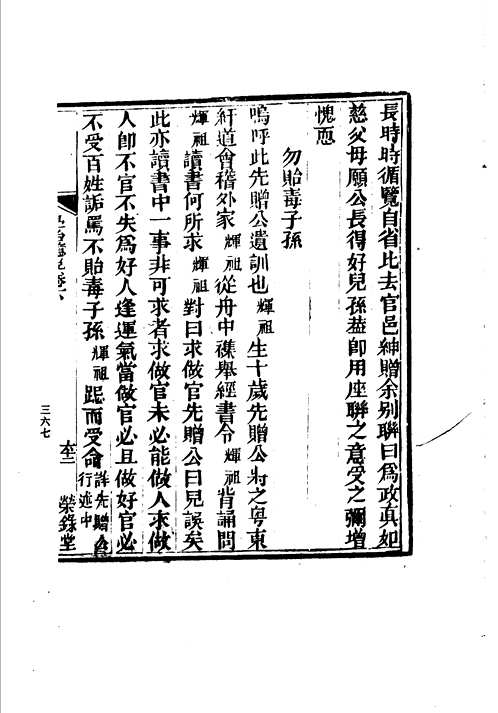 長時時循覽自省比去官邑紳贈余別聯曰爲政眞如
慈父母願公長得好兒孫葢卽用座聯之意受之彌增
愧恧
勿貽毒子孫
嗚呼此先贈公遺訓也輝祖生十歲先贈公將之粵東
紆道會稽外家輝祖從舟中襍舉經書令輝祖背誦問
輝祖讀書何所求輝祖對曰求做官先贈公曰兒誤矣
此亦讀書中一事非可求者求做官未必能做人求做
人卽不官不失爲好人逢運氣當做官必且做好官必
不受百姓詬罵不貽毒子孫輝祖跽而受命詳先贈公行述中
三六七
榮錄堂